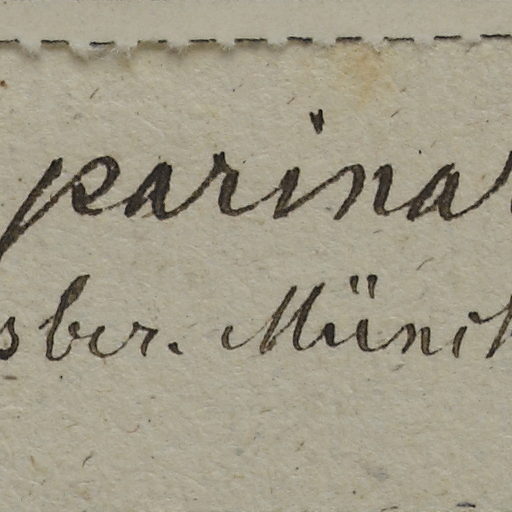 parinar
sber. Münch